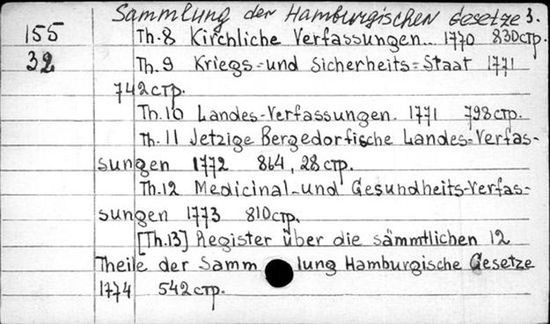 Sammlung der Hamburgischen Gesetze 3.
155 Th.8 Kirchliche Verfassungen.. 1770 830стр.
32 Th.9 Kriegs-und Sicherheits=Staat 1771
742стр.
Th.10 Landes-Verfassungen. 1771 798стр.
Th.11 Jetzige Bergedorfische Landes=Verfas-
sungen 1772 864, 28стр.
Th.12 Medicinal-und Gesundheits-Verfas-
sungen 1773 810стр.
[Th.13] Register über die sämmtlichen 12
Theile der Samm lung Hamburgische Gesetze
1774 542стр.